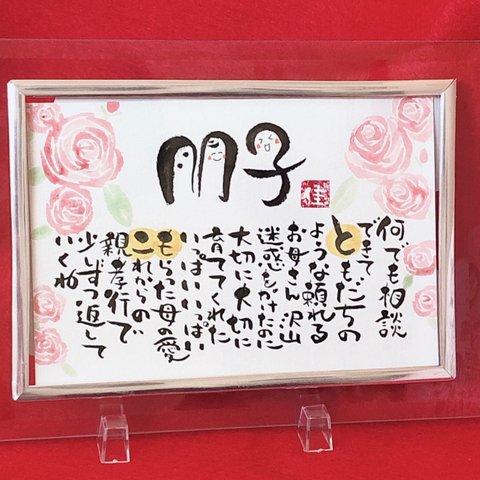 朋子
佳
何でも相談
できて、ともだちの
ような頼れる
お母さん 沢山
迷惑をかけたのに
大切に大切に
育ててくれた
いっぱいいっぱい
もらった母の愛
これからの
親孝行で
少しずつ返して
いくね